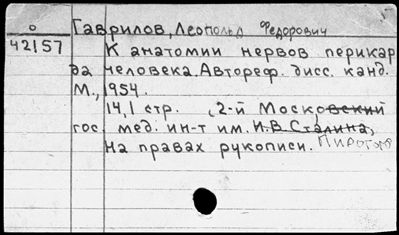 о Гаврилов, Леопольд Федорович
42157 К анатомии нервов перикар
да человека. Автореф. дисс. канд.
М., 1954.
14,1 стр. (2-й Московский
гос. мед. ин-т им. И.В. Сталина,
На правах рукописи. Пирогова